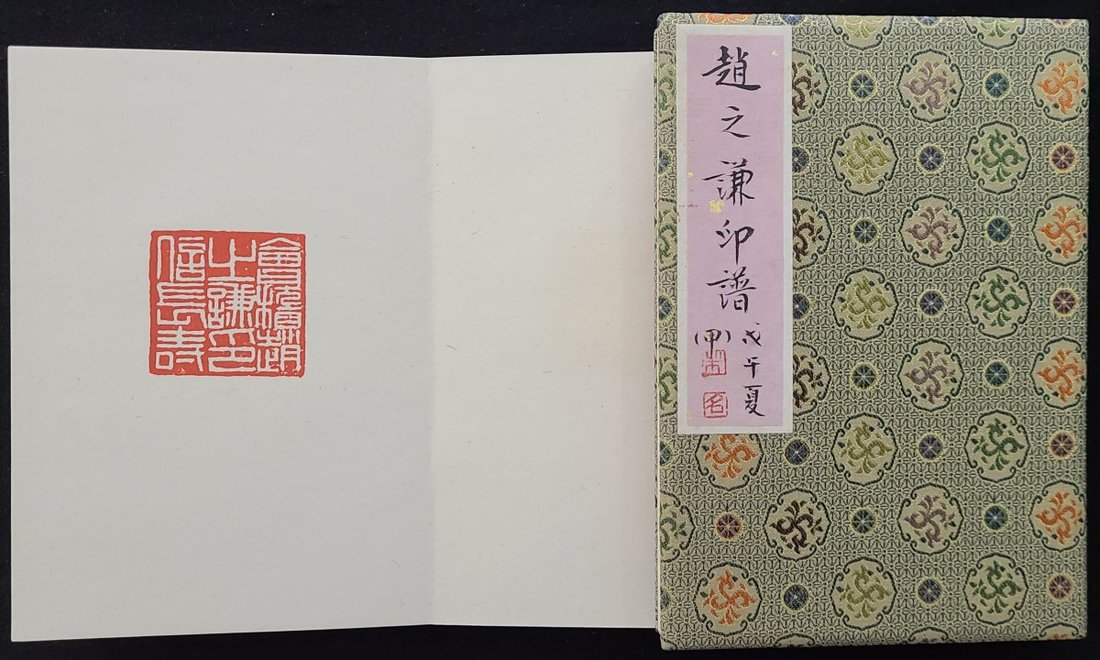 趙之謙印譜
戊午夏
(甲)
會稽趙
之謙印
信長壽